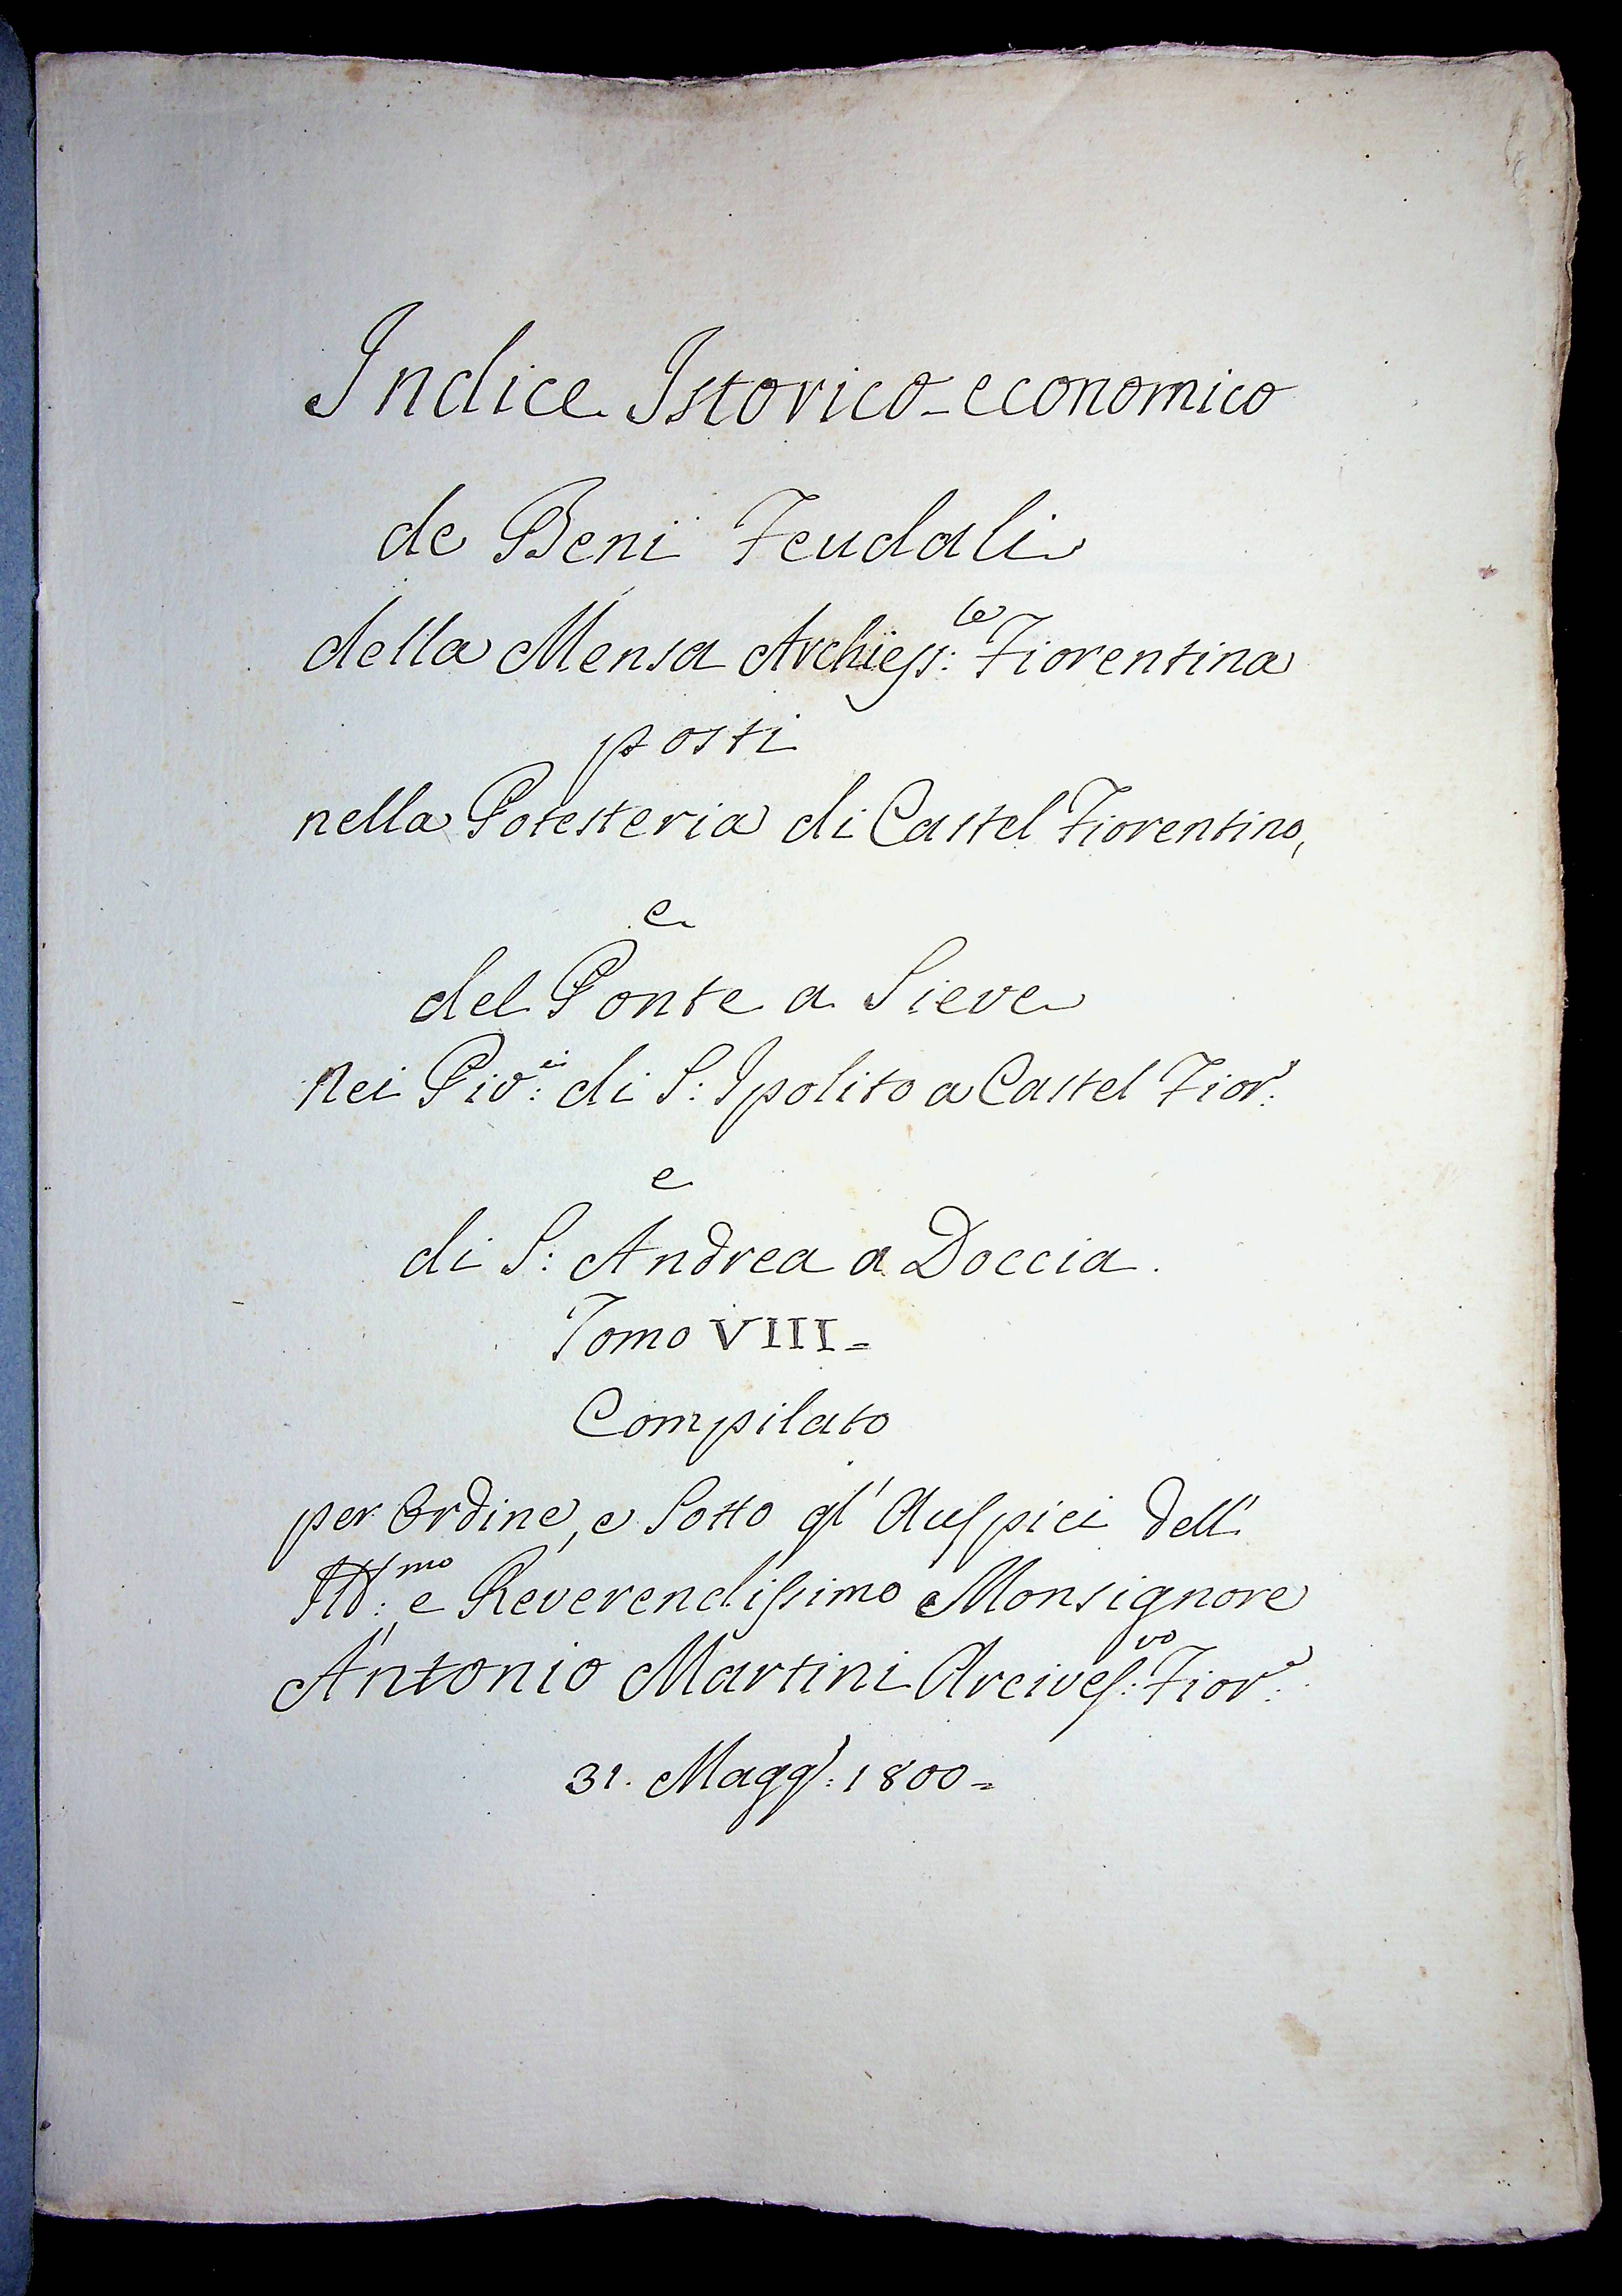 Indice Istorico-economico
de Beni Feudali
della Mensa Archiepis:le Fiorentina
posti
nella Potesteria di Castel Fiorentino,
e
del Ponte a Sieve
nei Piv:ri di S: Ipolito a Castel Fior:o
e
di S: Andrea a Doccia.
Tomo VIII=
Compilato
per Ordine, e Sotto gl' Auspici dell'
Ill:mo e Reverendissimo Monsignore
Antonio Martini Arcives:vo Fior:o
31. Magg: 1800=